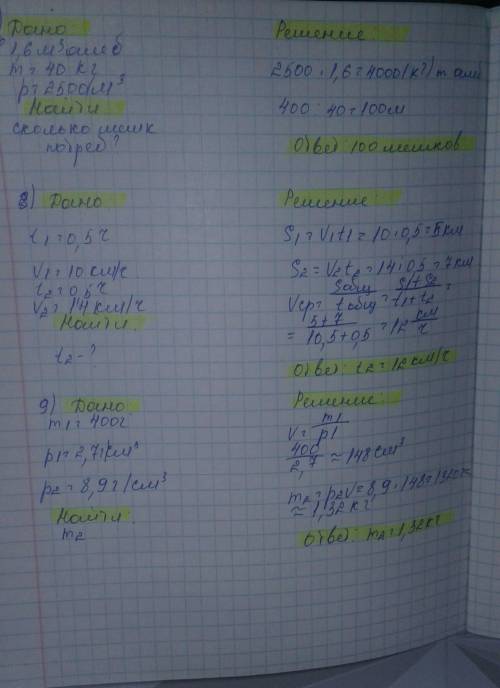 Дано
1,6 м³ алеб
m = 40 кг
p = 2500/м³
Найти
сколько мешк
потреб?
Решение
2500 · 1,6 = 4000 (кг) m алеб
400 : 40 = 100 м
Ответ: 100 мешков
8) Дано
t1 = 0,5 ч
V1 = 10 км/ч
t2 = 0,5 ч
V2 = 14 км/ч
Найти
t2 - ?
Решение:
S1 = V1t1 = 10 · 0,5 = 5 км
S2 = V2t2 = 14 · 0,5 = 7 км
Vср = Sобщ/tобщ = S1+S2/t1+t2 =
= 5+7/10,5+0,5 = 12 км/ч
Ответ: t2 = 12 км/ч
9) Дано
m1 = 400г
p1 = 2,7 г/см³
p2 = 8,9 г/см³
Найти
m2
Решение:
V = m1/p1
400/2,7 ≈ 148 см³
m2 = p2V = 8,9 · 148 = 1320 г
≈ 1,32 кг
Ответ: m2 = 1,32 кг